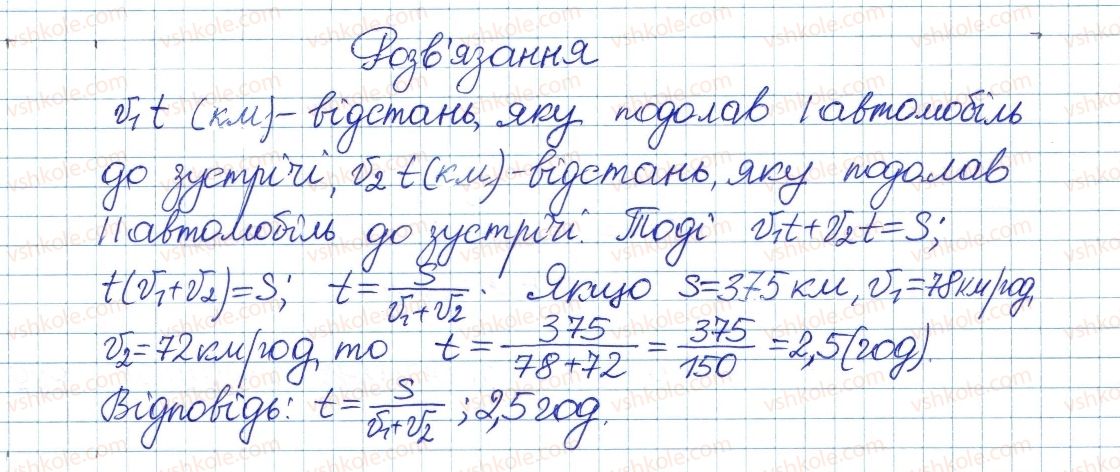 Розв'язання
v₁t (км) – відстань, яку подолав І автомобіль
до зустрічі, v₂t (км) – відстань, яку подолав
ІІ автомобіль до зустрічі. Тоді v₁t + v₂t = S;
t(v₁ + v₂) = S; t = S/(v₁ + v₂). Якщо S = 375 км, v₁ = 78 км/год,
v₂ = 72 км/год, то t = 375/(78 + 72) = 375/150 = 2,5 (год).
Відповідь: t = S/(v₁ + v₂); 2,5 год.